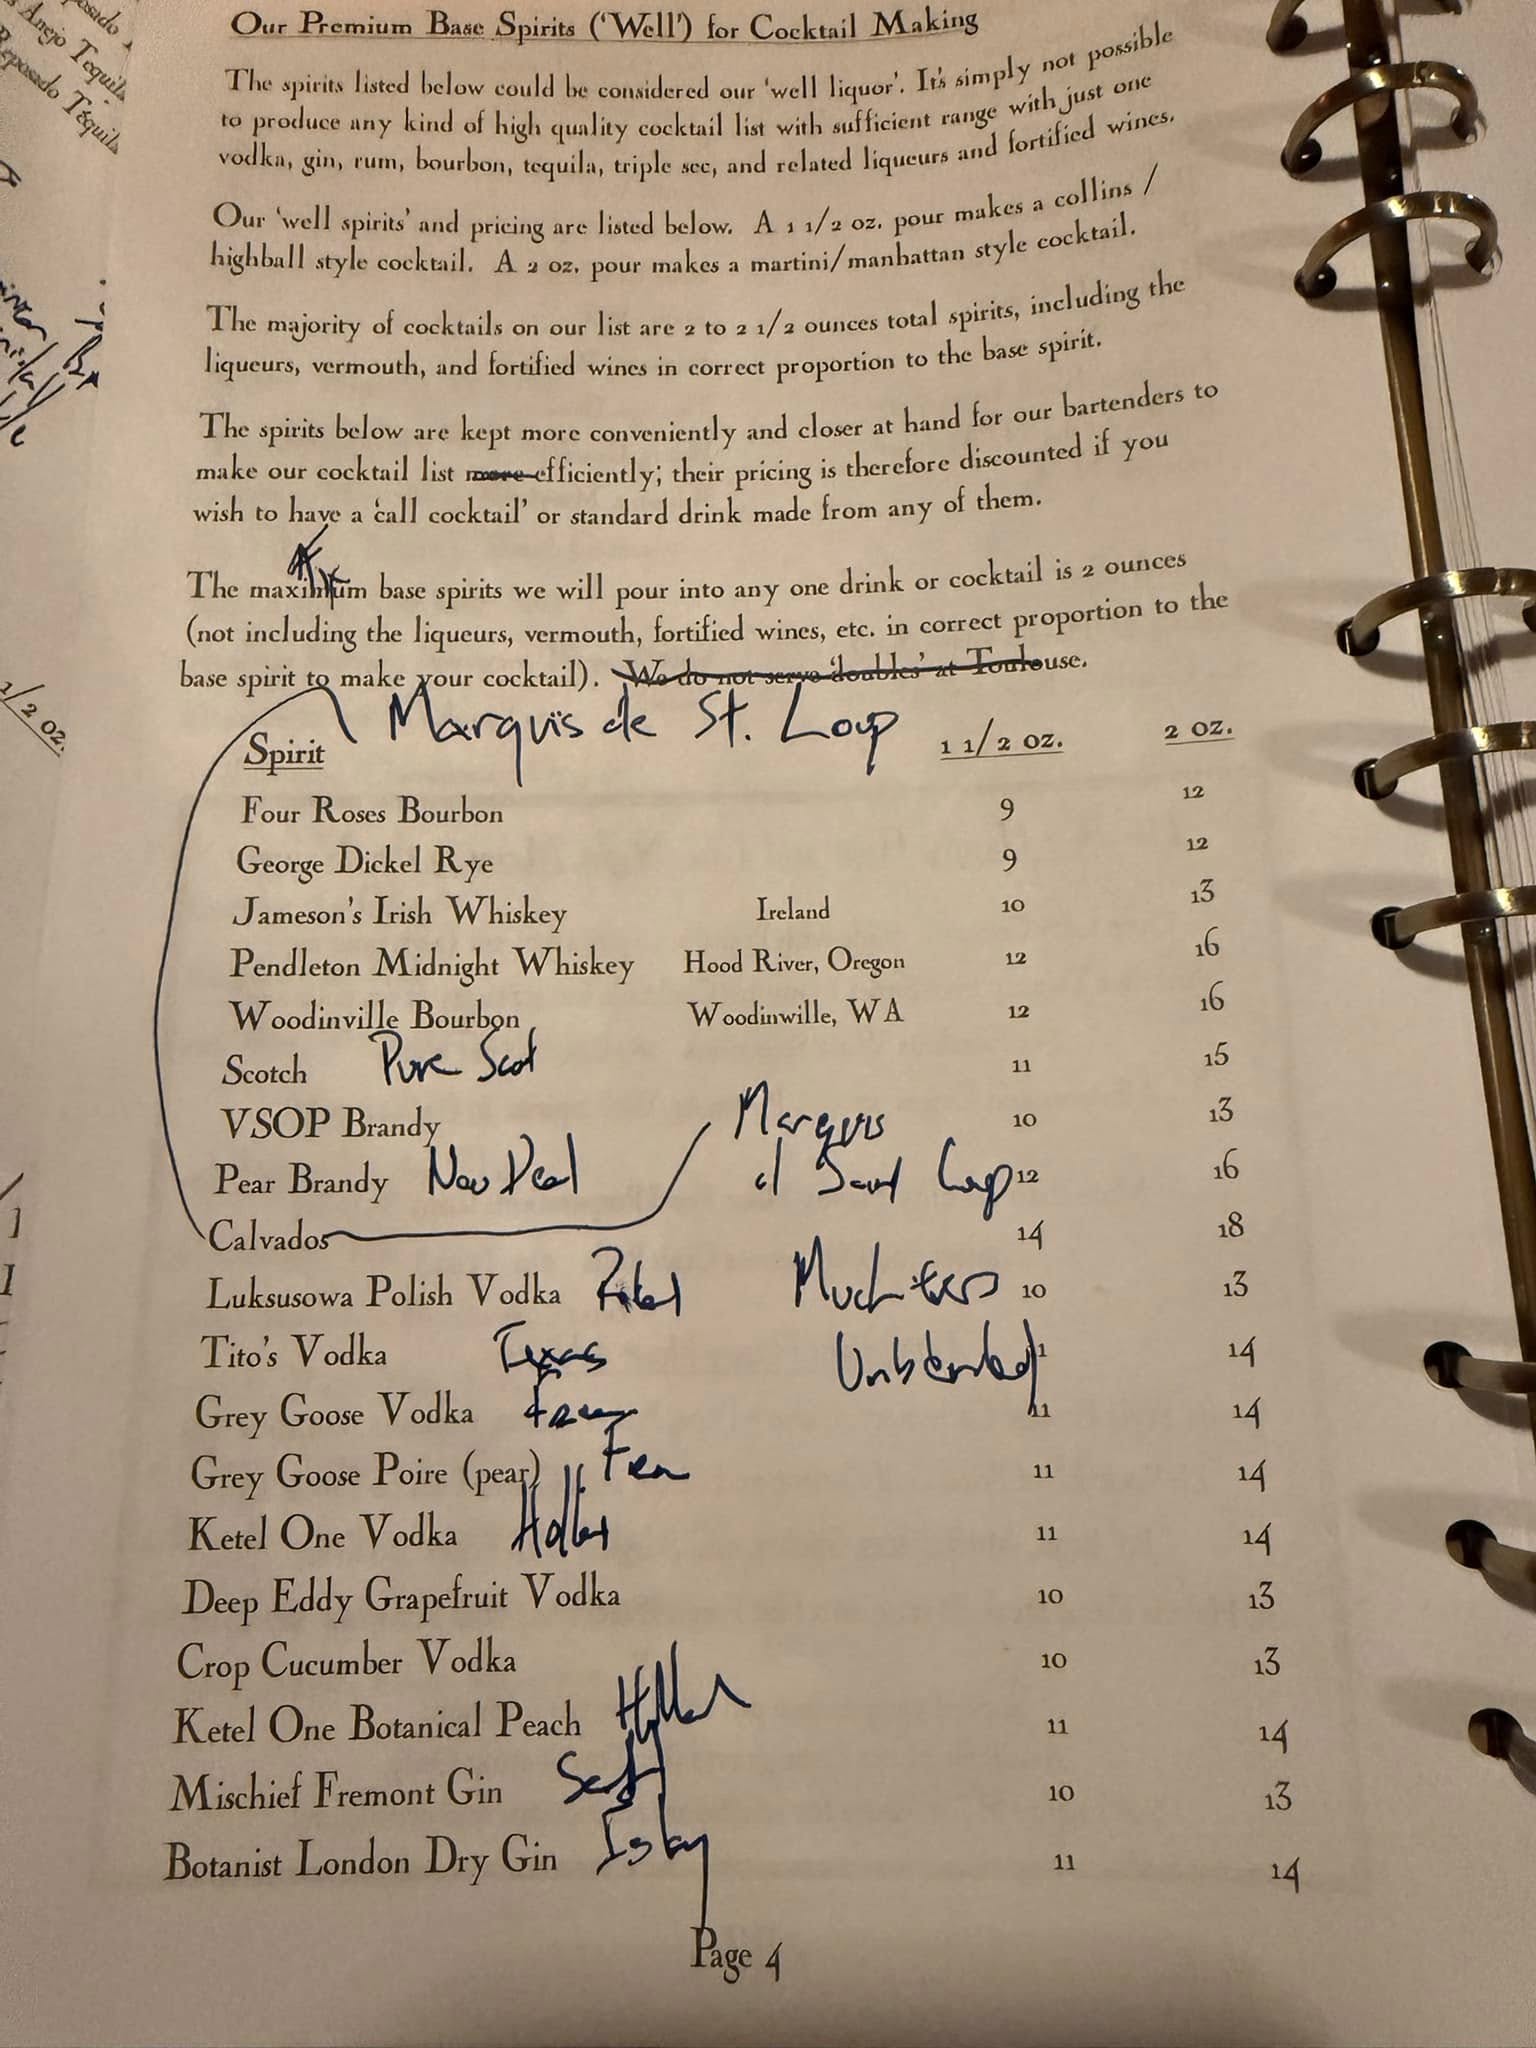 Our Premium Base Spirits ('Well') for Cocktail Making
The spirits listed below could be considered our 'well liquor'. It's simply not possible
to produce any kind of high quality cocktail list with sufficient range with just one
vodka, gin, rum, bourbon, tequila, triple sec, and related liqueurs and fortified wines.
Our 'well spirits' and pricing are listed below. A 1 1/2 oz. pour makes a collins /
highball style cocktail. A 2 oz. pour makes a martini/manhattan style cocktail.
The majority of cocktails on our list are 2 to 2 1/2 ounces total spirits, including the
liqueurs, vermouth, and fortified wines in correct proportion to the base spirit.
The spirits below are kept more conveniently and closer at hand for our bartenders to
make our cocktail list more efficiently; their pricing is therefore discounted if you
wish to have a 'call cocktail' or standard drink made from any of them.
The maximum base spirits we will pour into any one drink or cocktail is 2 ounces
(not including the liqueurs, vermouth, fortified wines, etc. in correct proportion to the
base spirit to make your cocktail). We do not serve 'doubles' at Toulouse.
Marquis de St. Loup
Spirit 1 1/2 oz. 2 oz.
Four Roses Bourbon 9 12
George Dickel Rye 9 12
Jameson's Irish Whiskey Ireland 10 13
Pendleton Midnight Whiskey Hood River, Oregon 12 16
Woodinville Bourbon Woodinwille, WA 12 16
Scotch Pure Scot 11 15
VSOP Brandy Marquis 10 13
Pear Brandy New Deal 12 16
Calvados 14 18
Luksusowa Polish Vodka 10 13
Tito's Vodka Texas 14
Grey Goose Vodka 11 14
Grey Goose Poire (pear) 11 14
Ketel One Vodka 11 14
Deep Eddy Grapefruit Vodka 10 13
Crop Cucumber Vodka 10 13
Ketel One Botanical Peach 11 14
Mischief Fremont Gin 10 13
Botanist London Dry Gin Islay 11 14
Page 4
Añejo Tequila
Reposado Tequila
1/2 oz.